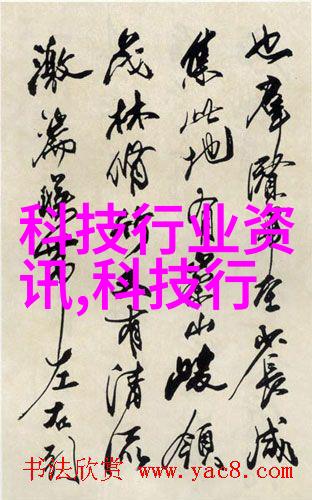 也羣賢畢至少長咸
集此地有崇山峻領
茂林脩竹又有清流
激湍暎帶左右引
科技行业资
讯,科技行
书法欣赏 www.yac8.com